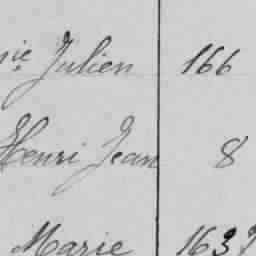 Julien 166
Henri Jean 8
Marie 1637